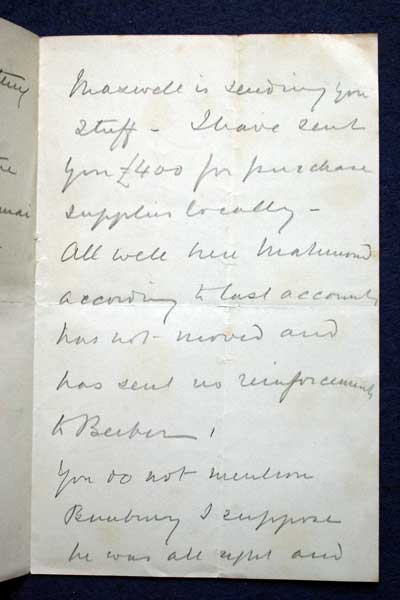 Maxwell is sending you
stuff - I have sent
you £400 for purchase
supplies locally -
All well here Mahmoud
according to last accounts
has not moved and
has sent no reinforcements
to Berber !
You do not mention
Bunbury I suppose
he was all right and